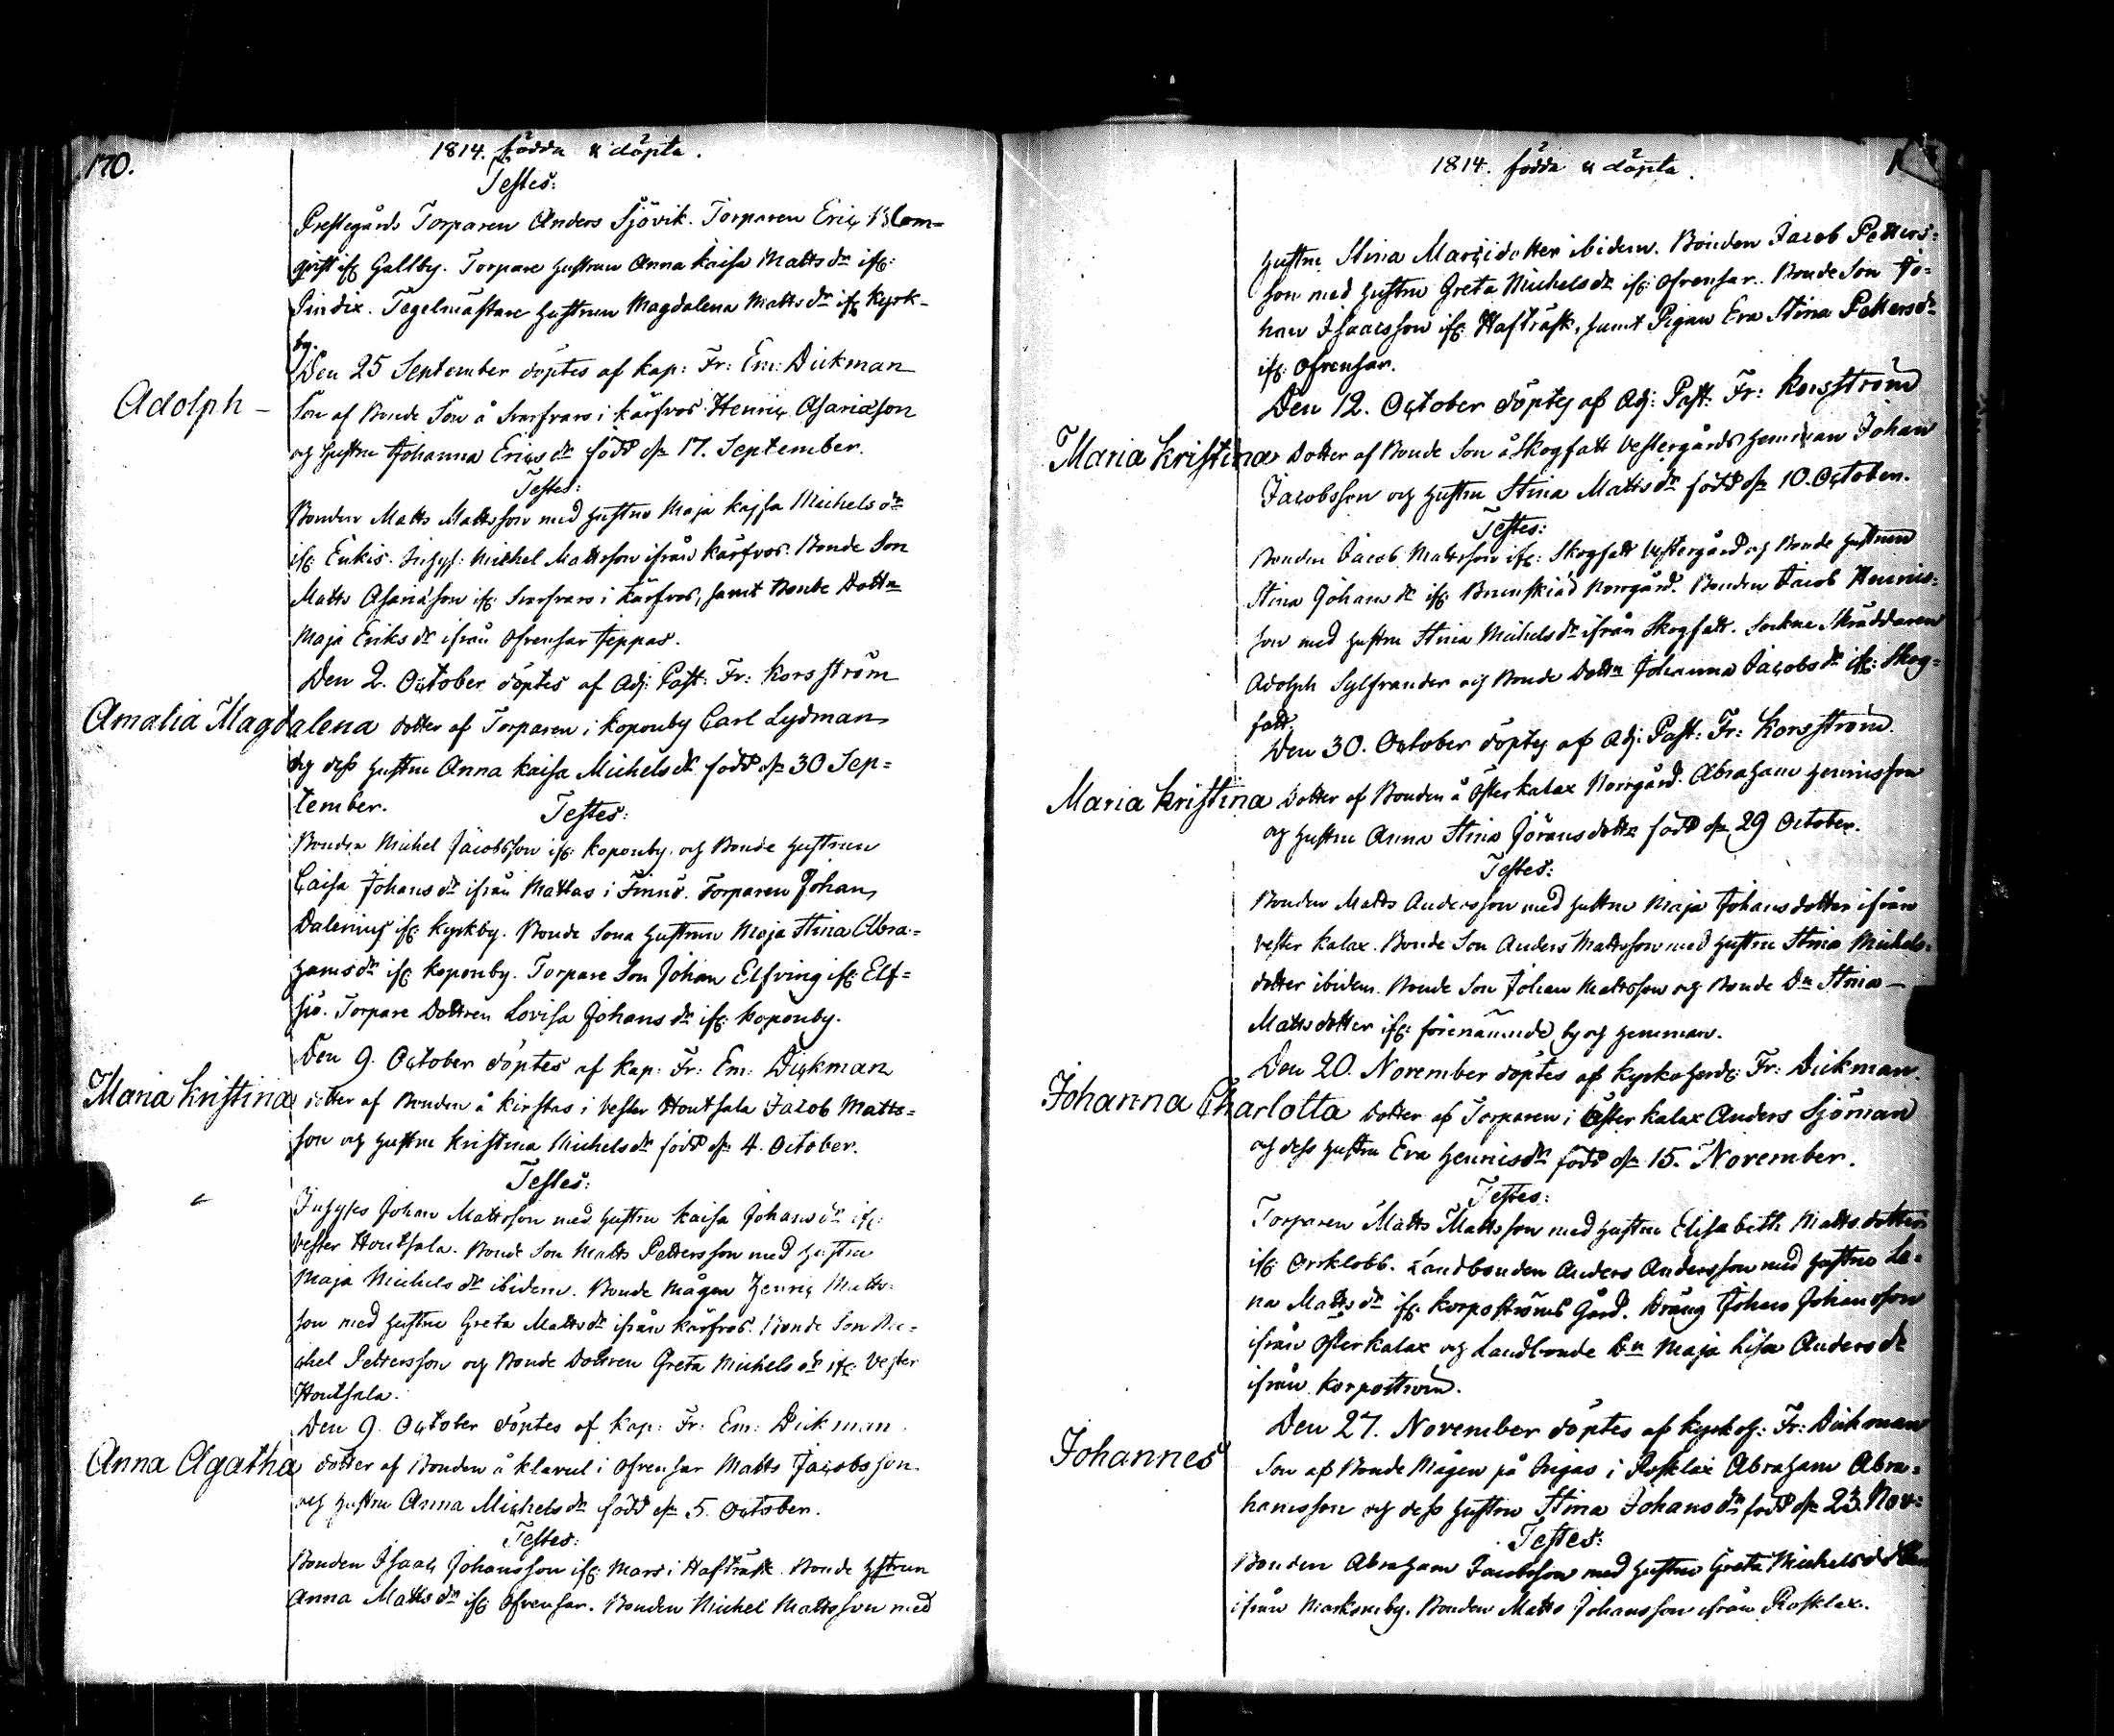 170.
1814. födda & döpta.
Testes:
Prestegårds Torparen Anders Sjövik. Torparen Eric Blom=
qvist ifr: Gallby. Torpare hustrun Anna Kaisa Matts dr ifr:
Tegelmästare hustrun Magdalena Matts dr ifr: Kyrk-
by.
Den 25 September döptes af Kap: Fr: Em: Dickman
Adolph – Son af Bonde Son å Svarfvars i Kärfvos Henric Asariæson
og hustru Johanna Erics dr född d. 17. September.
Testes:
Bonden Matts Mattsson med hustru Maja Kajsa Michels dr
ifr: Enkis. Inhys: Michel Mattsson ifrån Kärfvos. Bonde Son
Matts Asariæson ifr: Svarfvars i Kärfvos, samt Bonde Dottn
Maja Eriks dr ifrån Ofvensar Teppas.
Den 2. October döptes af Adj: Past: Fr: Korsström
Amalia Magdalena dotter af Torparen i Koponby Carl Lydman
og dess hustru Anna Kaisa Michels dr född d. 30 Sep=
tember.
Testes:
Bonden Michel Jacobsson ifr: Koponby og Bonde hustrun
Caisa Johans dr ifrån Mattas i Finnö. Torparen Johan
Dalenius ifr: Kyrkby. Bonde Sona hustrun Maja Stina Abra=
hams dr ifr: Koponby. Torpare Son Johan Elfving ifr: Elf=
sjö. Torpare Dottren Lovisa Johans dr ifr: Koponby.
Den 9. October döptes af Kap: Fr: Em: Dickman
Maria Kristina dotter af Bonden å Kirstas i Vester Houtsala Jacob Matts=
son og hustru Kristina Michels dr född d. 4. October.
Testes:
Inhyses Johan Mattsson med hustru Kaisa Johans dr ifr:
Vester Houtsala. Bonde Son Matts Pettersson med hustru
Maja Michels dr ibidem. Bonde Mågen Henric Matts=
son med hustru Greta Matts dr ifrån Kärfvos. Bonde Son Mi=
chel Pettersson og Bonde Dottren Greta Michels dr ifr: Vester
Houtsala.
Den 9. October döptes af Kap: Fr: Em: Dickman
Anna Agatha dotter af Bonden å Klaveul i Ofvensar Matts Jacobsson
og hustru Anna Michels dr född d. 5. October.
Testes:
Bonden Isaac Johansson ifr: Mars i Hafträsk. Bonde hstrun
Anna Matts dr ifr: Ofvensar. Bonden Michel Mattsson med
1814. födda & döpta.
hustru Stina Marcidotter ibidem. Bonden Jacob Petters=
son med hustru Greta Michels dr ifr: Ofvensar. Bonde Son Jo=
han Isacsson ifr: Hafträsk, samt Pigan Eva Stina Petters dr
ifr: Ofvensar.
Den 12. October döptes af Adj: Past: Fr: Korsström
Maria Kristina Dotter af Bonde Son å Skogfatt Vestergårds hemman Johan
Jacobsson og hustru Stina Matts dr född d. 10. October.
Testes:
Bonden Jacob Mattsson ifr: Skogfatt Vestergård og Bonde hustrun
Stina Johans dr ifr: Brunskiäd Norrgård. Bonden Jacob Henrics=
son med hustru Stina Michels dr ifrån Skogfatt. Sockne Skräddaren
Adolph Sylfvander og Bonde Dottn Johanna Jacobs dr ifr: Skog=
fatt.
Den 30. October döptes af Adj: Past: Fr: Korsström.
Maria Kristina Dotter af Bonden å Öster Kalax Norrgård. Abraham Henricsson
og hustru Anna Stina Jörans dottr född d. 29 October.
Testes:
Bonden Matts Andersson med hustru Maja Johans dotter ifrån
Vester Kalax. Bonde Son Anders Mattsson med hustru Stina Michels=
dotter ibidem. Bonde Son Johan Mattsson og Bonde Dn Stina –
Mattsdotter ifr: förenämnde by og hemman.
Den 20. November döptes af Kyrkoherde: Fr: Dickman.
Johanna Charlotta Dotter af Torparen i Öster Kalax Anders Sjöman
og dess hustru Eva Henrics dr född d. 15. November.
Testes:
Torparen Matts Mattsson med hustru Elisabeth Matts dotter
ifr: Orrklobb. Landbonden Anders Andersson med hustru Le=
na Matts dr ifr: Korpoströms Gård. Dräng Johan Johansson
ifrån Öster Kalax og Landbonde Dn Maja Lisa Anders dr
ifrån Korpostrom.
Den 27. November döptes af Kyrkoh: Fr: Dickman
Johannes Son af Bonde Mågen på Ingas i Rosklax Abraham Abra=
hamsson og dess hustru Stina Johans dr född d. 23. Nov=
Testes:
Bonden Abraham Jacobsson med hustru Greta Michels dotter
ifrån Marksmby. Bonden Matts Johansson ifrån Rosklax.